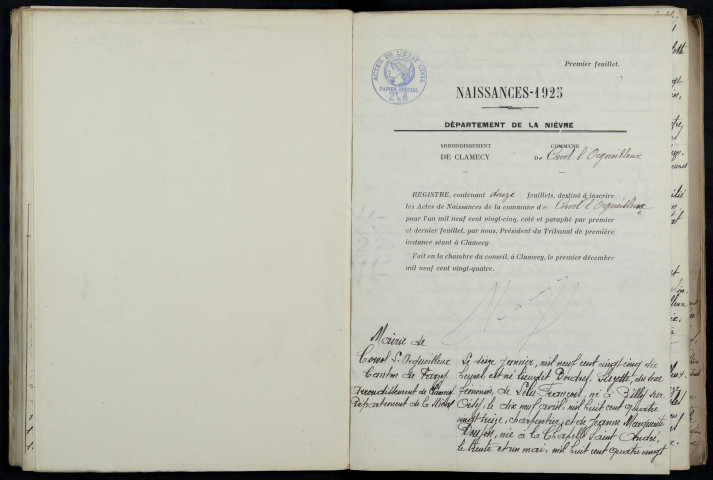 Premier feuillet.
ACTES DE L'ÉTAT CIVIL
PAPIER SPÉCIAL
NAISSANCES-1925
DÉPARTEMENT DE LA NIÈVRE
ARRONDISSEMENT
DE CLAMECY
COMMUNE
DE Corvol l'Orgueilleux
REGISTRE, contenant douze feuillets, destiné à inscrire
les Actes de Naissances de la commune de Corvol l'Orgueilleux
pour l'an mil neuf cent vingt-cinq, coté et paraphé par premier
et dernier feuillet, par nous, Président du Tribunal de première
instance séant à Clamecy.
Fait en la chambre du conseil, à Clamecy, le premier décembre
mil neuf cent vingt-quatre.
Mairie de
Corvol l'Orgueilleux
Canton de Varzy
Arrondissement de Clamecy
Département de la Nièvre
Le seize janvier, mil neuf cent vingt-cinq dix
heures, est né lieudit du sexe
féminin, de François, né à Billy sur
Oisy, le dix neuf avril, mil huit cent quatre
vingt treize, charpentier, et de Jeanne Marguerite
née à la Chapelle Saint André,
le trente et un mai, mil huit cent quatre vingt